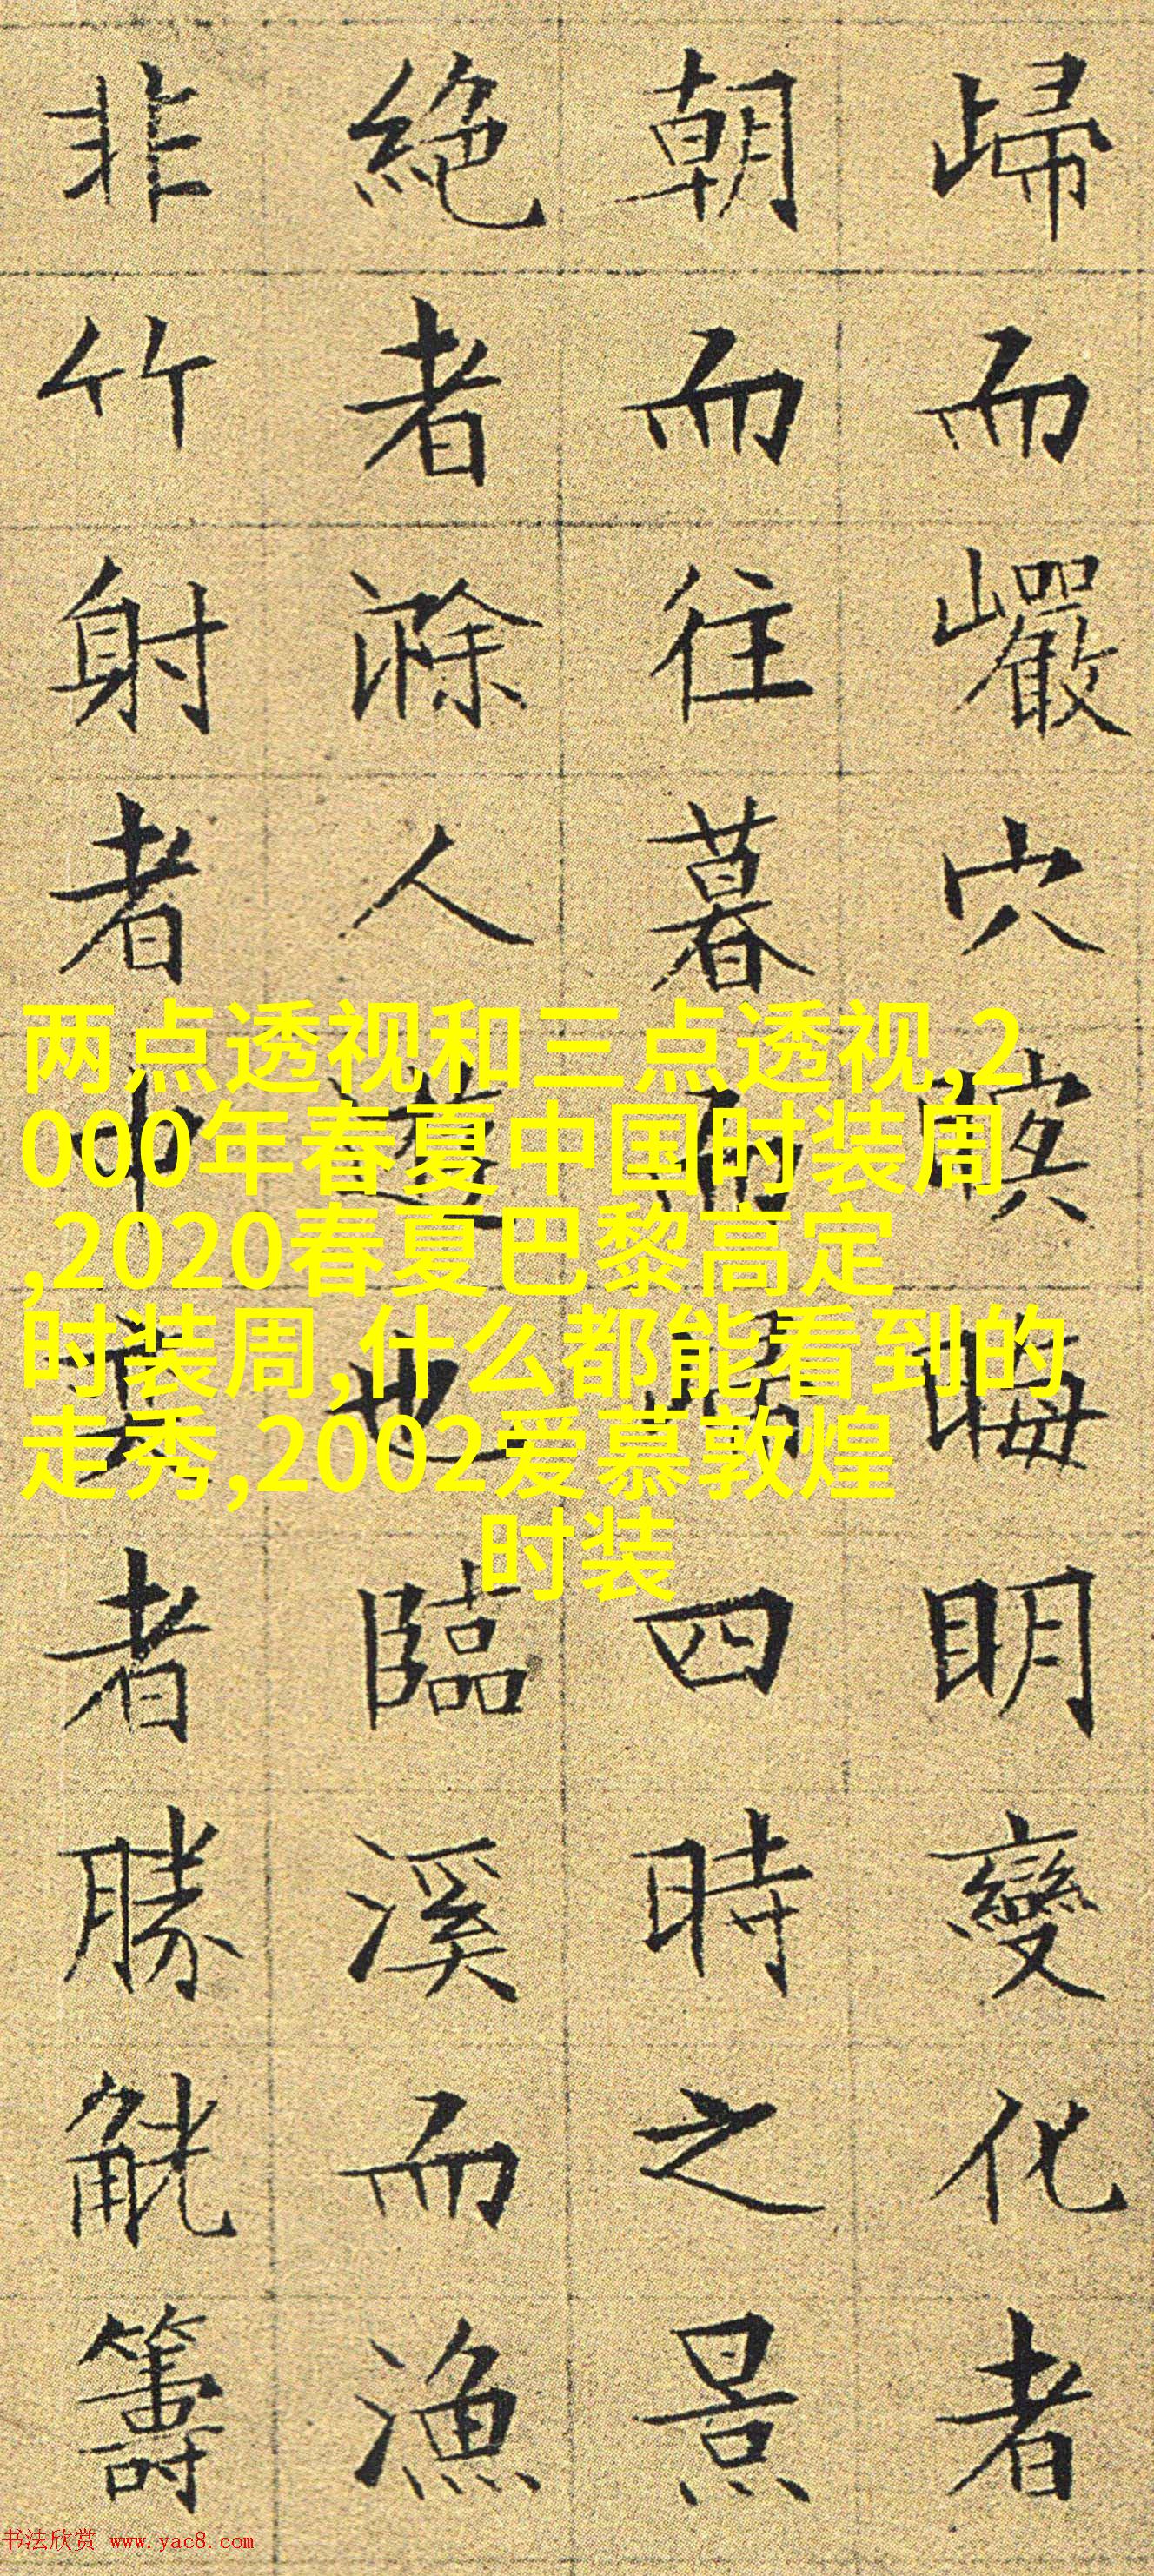 歸而巗穴晦明變化者
朝而往暮四時之景
絕者滁人也臨溪而漁
非竹射者中者勝觥籌
两点透视和三点透视,2
000年春夏中国时装周
,2020春夏巴黎高定
时装周,什么都能看到的
走秀,2002爱慕敦煌
时装
书法欣赏 www.yac8.com